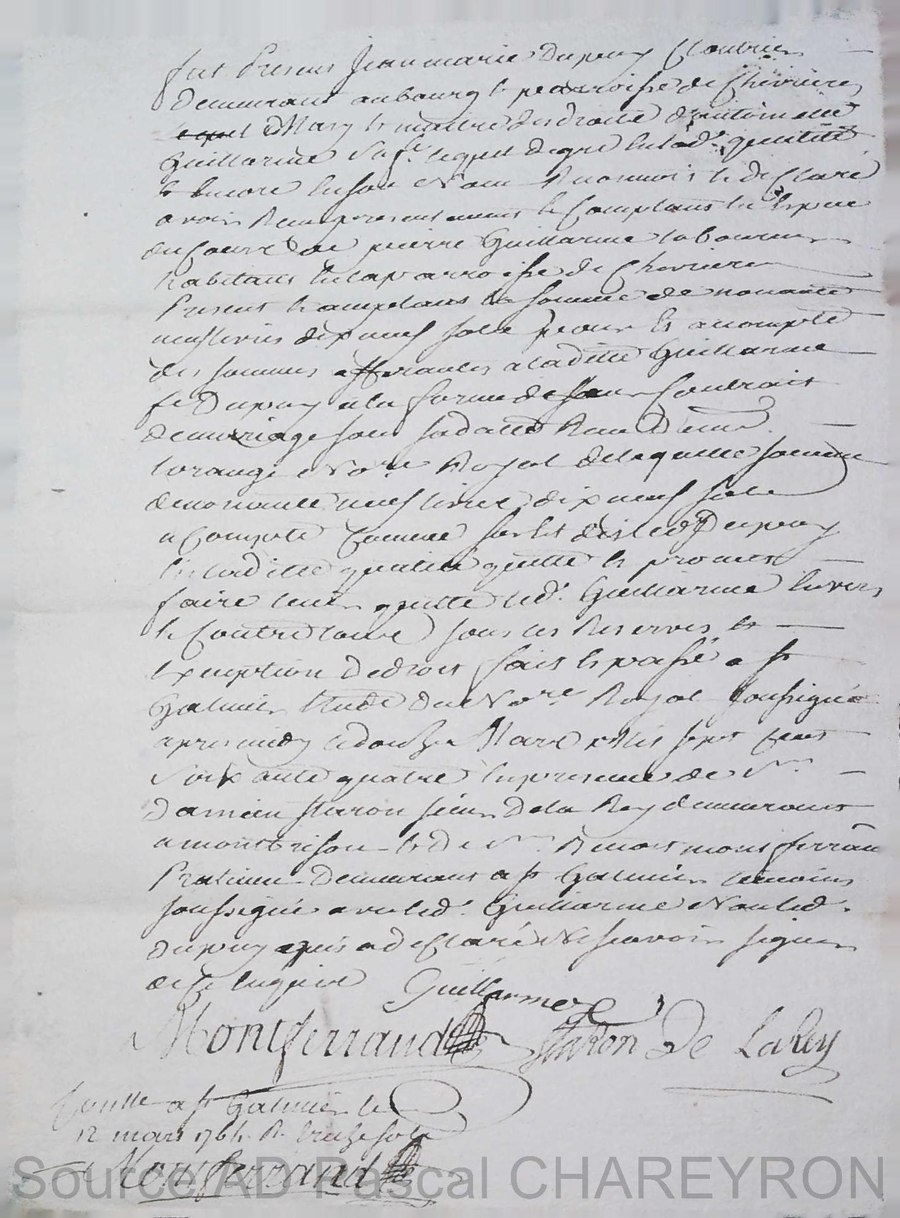 fut Present Jean marie Dupuy Cloutrier
demeurant au bourg et parroisse de Chevrieres
lequel Mary et maitre des droits d'antoinette
Guillarme sa fe. lequel de gré en lad. qualité
et encore en son Nom a reconnu et déclaré
avoir Reçu presentement et Comptant en Espece
du Cours de pierre Guillarme laboureur
habitant en la parroisse de Chevrieres
Present Acceptant la somme de nonante
neuf livres dix neuf sols pour et a compte
des sommes afferantes a ladite Guillarme
fe Dupuy a la forme de son Contrait
de mariage sous sa datte Reçu
Notre Royal de laquelle somme
de nonante neuf livres dix neuf sols
a Compte Comme sus est dit led Dupuy
en ladite qualité quitte et promet
faire tenir quitte led. Guillarme Envers
et Contre tous sous les Reserves et
Exception de droit fait et passé a st
Galmier Etude du Notre Royal soussigné
apres midy le douze Mars Mil sept cent
soixante quatre En presence de Sr.
Damien Staron sieur De la Rey demeurant
a montbrison et de Sr. Benoit montferrand
Praticien Demeurant a st Galmier temoins
soussignés avec led. Guillarme Non led.
Dupuy qui a declaré Ne sçavoir signer
de ce Enquis Guillarme
Montferrand Staron De LaRey
Conttlé a st Galmier le
12 mars 1764 R. treize sols
Montferrand
Source AD Pascal CHAREYRON